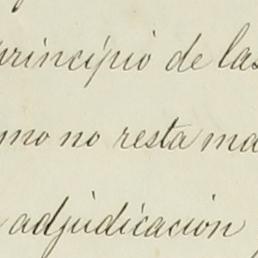 principio de las
mo no resta ma
adjudicacion